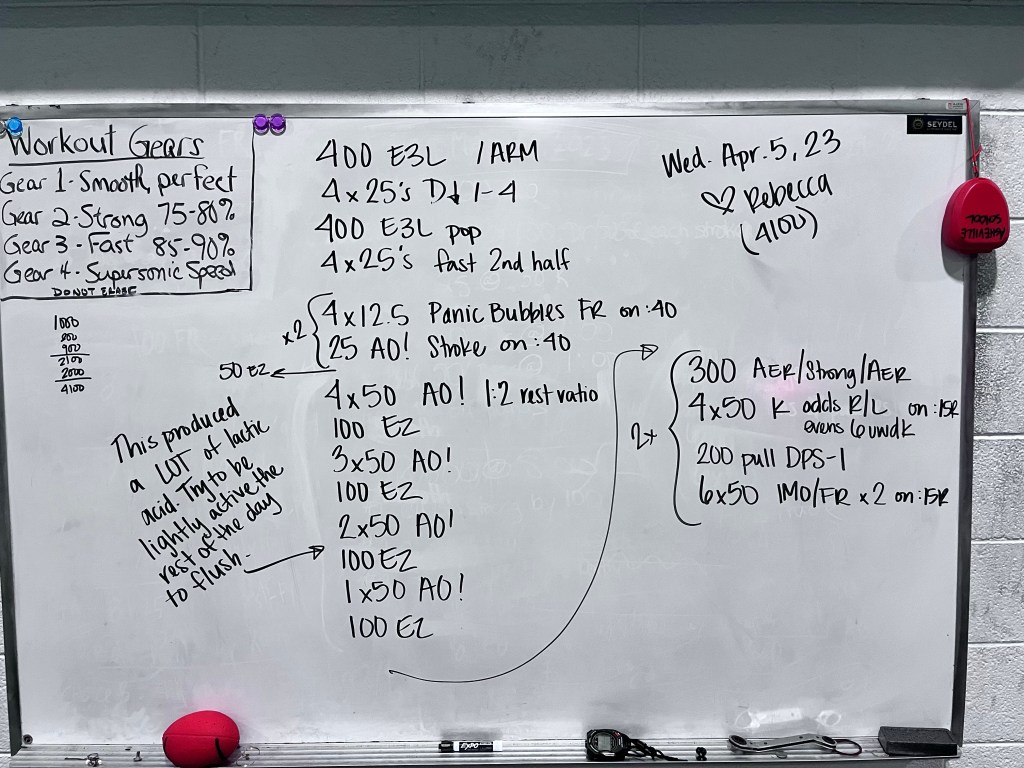 Workout Gears
Gear 1 - Smooth, perfect
Gear 2 - Strong 75-80%
Gear 3 - Fast 85-90%
Gear 4 - Supersonic Speed
DO NOT ERASE
1000
200
900
2100
2000
4100
400 E3L 1ARM
4x25's D↓ 1-4
400 E3L pop
4x25's fast 2nd half
x2
4x12.5 Panic Bubbles FR on :40
25 AO! Stroke on :40
50 EZ
4x50 AO! 1:2 rest ratio
100 EZ
3x50 AO!
100 EZ
2x50 AO!
100 EZ
1x50 AO!
100 EZ
This produced
a LOT of lactic
acid. Try to be
lightly active the
rest of the day
to flush.
Wed. Apr. 5, 23
♡ Rebecca
(4100)
2x
300 AER/Strong/AER
4x50 K odds R/L on :15R
evens 6uwdk
200 pull DPS-1
6x50 IMO/FR x2 on :15R
SEYDEL
ASHEVILLE
SCHOOL
EXPO